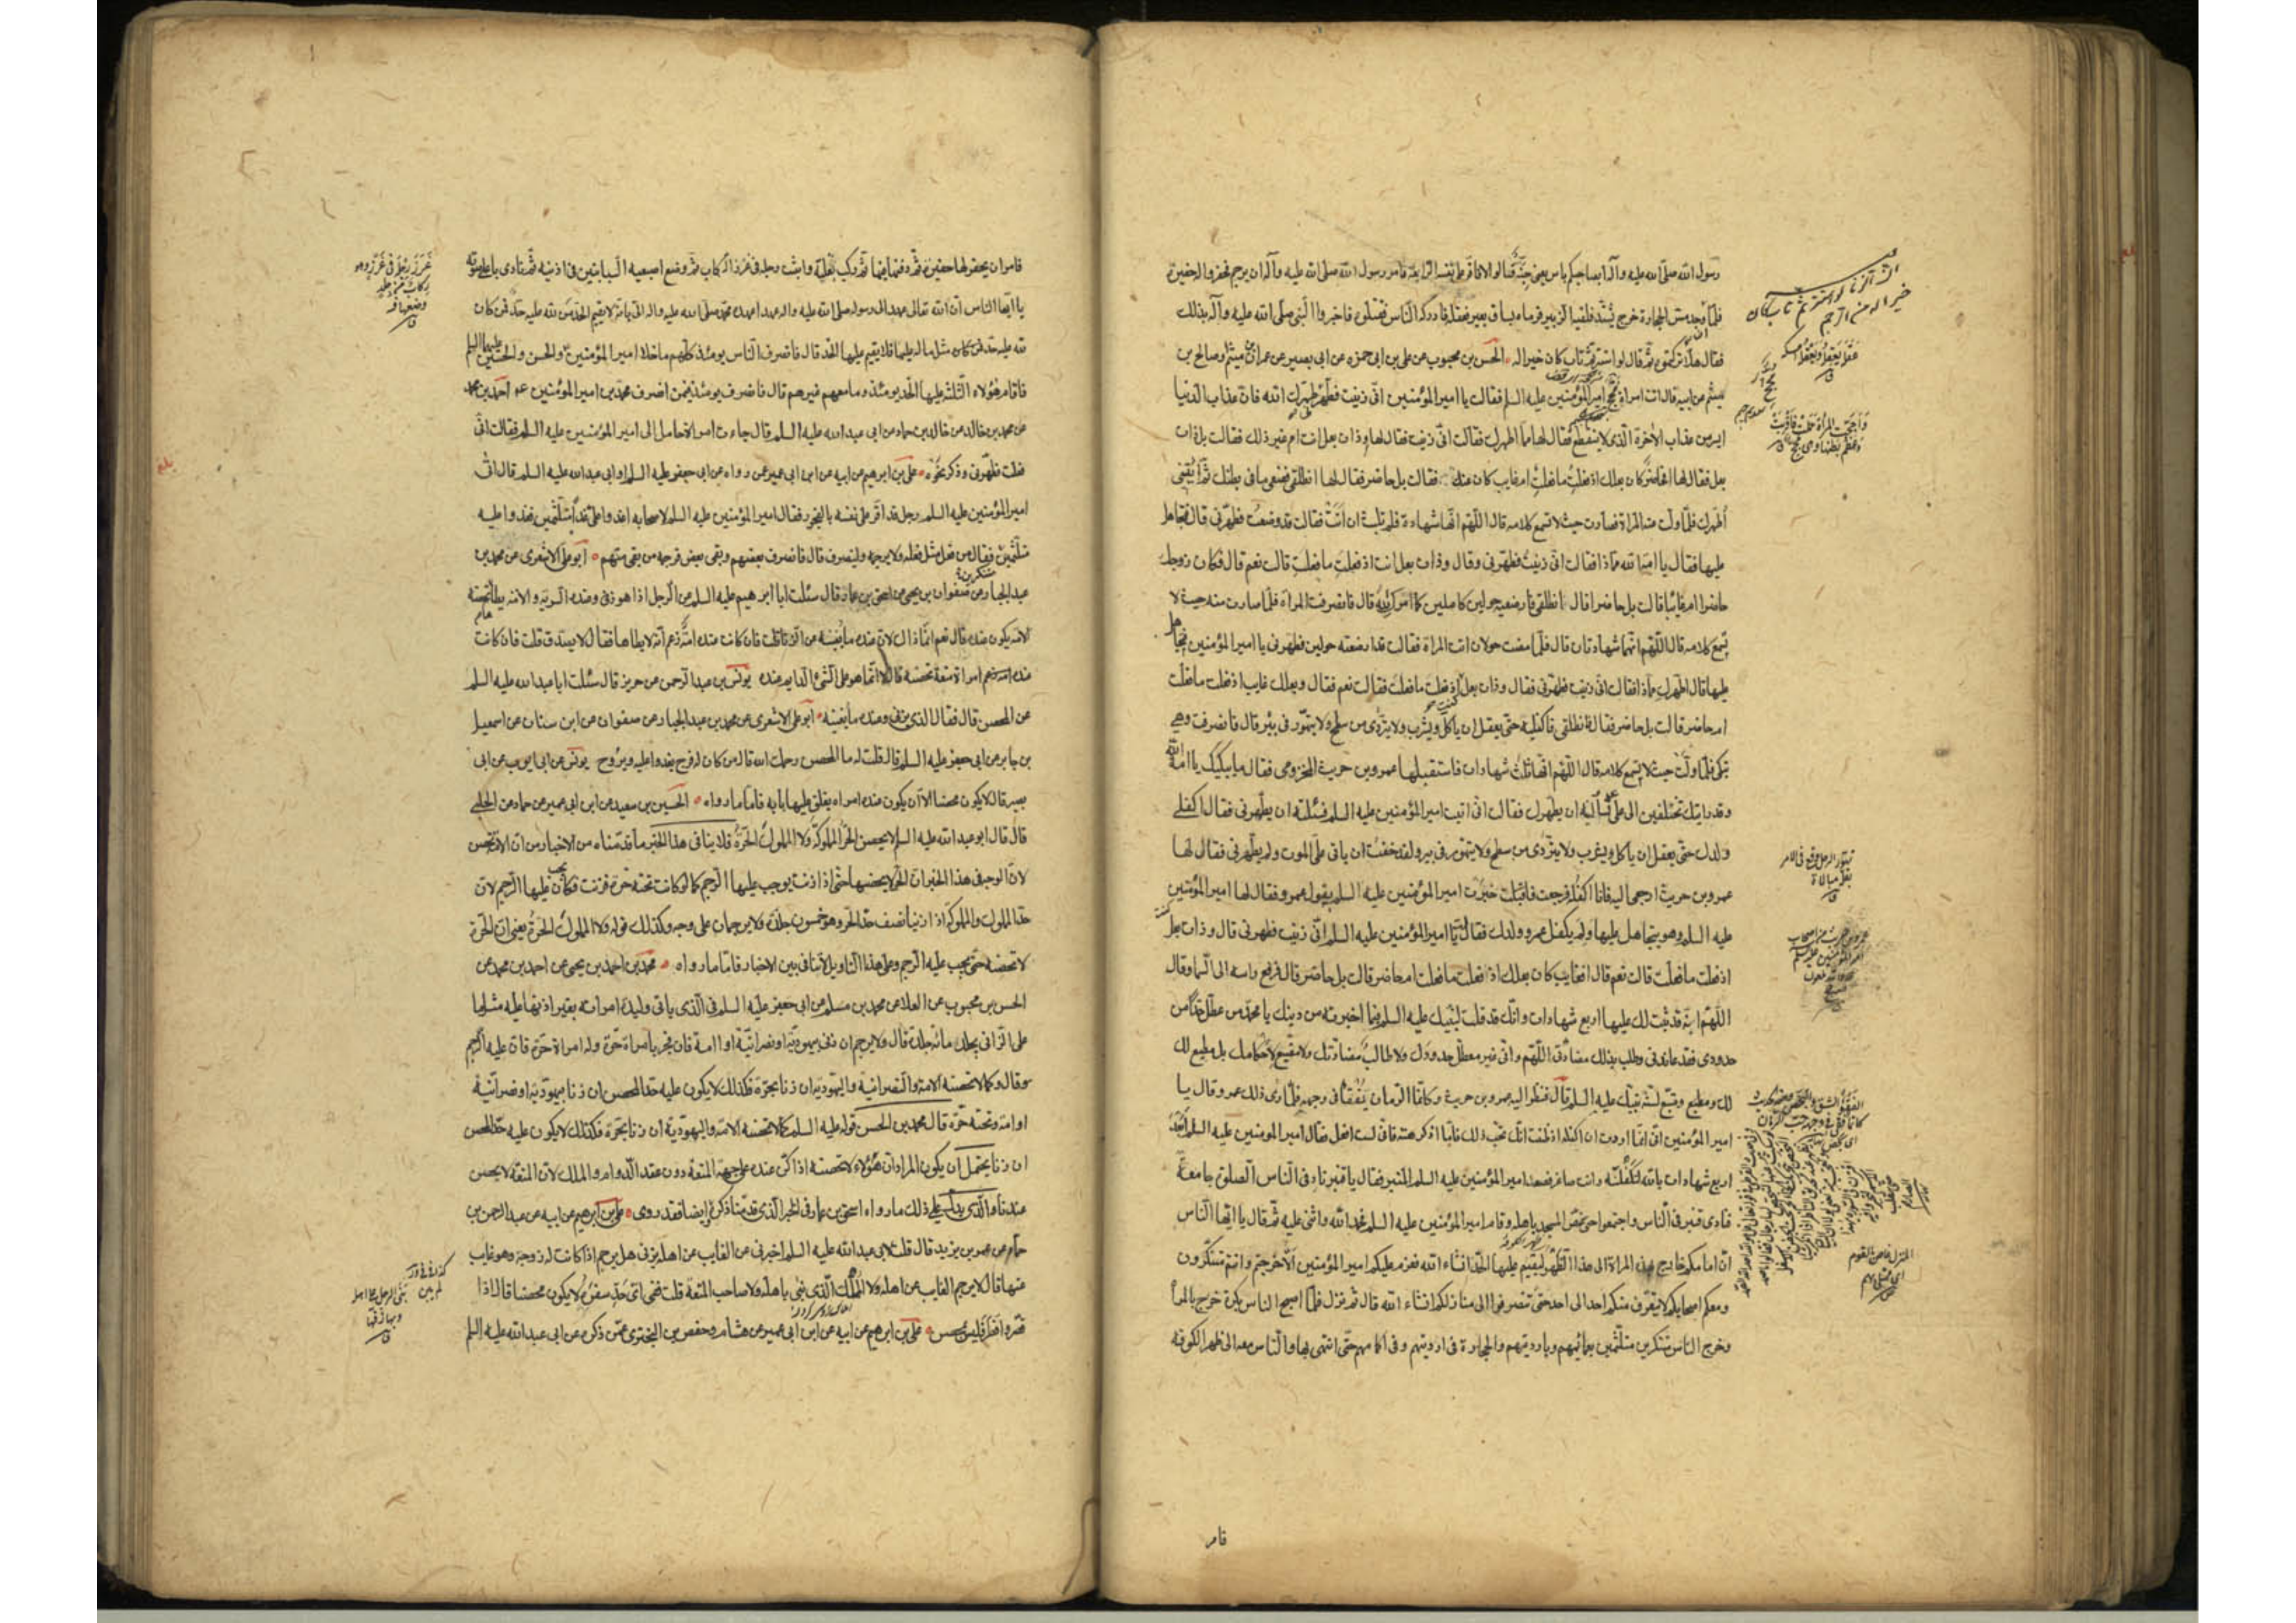 رسول الله صلى الله عليه وآله ابصاحبكم باس يعنى جنة فقالوا لا فاقر على نفسه الرابعة فامر رسول الله صلى الله عليه وآله ان يرجم فحفروا له حفيرة
فلما وجد مس الحجارة خرج يشتد فلقيه الزبير فرماه بساق بعير فعقله فادركه الناس فقتلوه فاخبروا النبى صلى الله عليه وآله بذلك
فقال هلا تركتموه ثم قال لو استتر ثم تاب كان خيرا له الحسن بن محبوب عن على بن ابى حمزه عن ابى بصير عن عمران بن ميثم او صالح بن
ميثم عن ابيه قال اتت امراة مجح امير المؤمنين عليه السلم فقالت يا امير المؤمنين انى زنيت فطهرنى طهرك الله فان عذاب الدنيا
ايسر من عذاب الآخرة الذى لا ينقطع فقال لها مما اطهرك فقالت انى زنيت فقال لها وذات بعل انت ام غير ذلك فقالت بل ذات
بعل فقال لها افحاضرا كان بعلك اذ فعلت ما فعلت ام غايب كان عنك فقالت بل حاضر فقال لها انطلقى فضعى ما فى بطنك ثم ائتينى
اطهرك فلما ولت عنه المراة فصارت حيث لا تسمع كلامه قال اللهم انها شهادة فلم تلبث ان اتته فقالت قد وضعت فطهرنى قال فتجاهل
عليها فقال يا امة الله مماذا فقالت انى زنيت فطهرنى وقال وذات بعل انت اذ فعلت ما فعلت قالت نعم قال فكان زوجك
حاضرا ام غايبا قالت بل حاضرا قال انطلقى فارضعيه حولين كاملين كما امرك الله قال فانصرفت المراة فلما صارت منه حيث لا
تسمع كلامه قال اللهم انهما شهادتان قال فلما مضت حولان اتت المراة فقالت قد ارضعته حولين فطهرنى يا امير المؤمنين فتجاهل
عليها قال اطهرك مماذا فقالت انى زنيت فطهرنى فقال وذات بعل كنت اذ فعلت ما فعلت فقالت نعم فقال وبعلك غايب اذ فعلت ما فعلت
ام حاضر قالت بل حاضر فقال انطلقى فاكفليه حتى يعقل ان ياكل ويشرب ولا يتردى من سطح ولا يتهور فى بئر قال فانصرفت وهى
تبكى فلما ولت حيث لا تسمع كلامه قال اللهم انها ثلث شهادات فاستقبلها عمرو بن حريث المخزومى فقال ما يبكيك يا امة الله
وقد رايتك تختلفين الى على تسألينه ان يطهرك فقالت انى اتيت امير المؤمنين عليه السلم فسئلته ان يطهرنى فقال اكفلى
ولدك حتى يعقل ان ياكل ويشرب ولا يتردى من سطح ولا يتهور فى بير ولقد خفت ان ياتى على الموت ولم يطهرنى فقال لها
عمرو بن حريث ارجعى اليه فانا اكفله فرجعت فاقبلت خبرت امير المؤمنين عليه السلم بقول عمرو فقال لها امير المؤمنين
عليه السلم وهو يتجاهل عليها ولم يكفل عمرو ولدك فقالت يا امير المؤمنين عليه السلم انى زنيت فطهرنى قال وذات بعل
اذ فعلت ما فعلت قالت نعم قال افغايب كان بعلك اذ فعلت ما فعلت ام حاضر قالت بل حاضر قال فرفع راسه الى السما وقال
اللهم انه قد ثبت لك عليها اربع شهادات وانك قد قلت لنبيك عليه السلم فيما اخبرته من دينك يا محمد من عطل حدا من
حدودى فقد عاندنى وطلب بذلك مضادتى اللهم وانى غير معطل حدودك ولا طالب مضادتك ولا مضيع لاحكامك بل مطيع لك
لك ومطيع ومتبع لسنة نبيك عليه السلم قال فنظر اليه عمرو بن حريث وكانما الرمان يفقأ فى وجهه فلما راى ذلك عمرو قال يا
امير المؤمنين انى انما اردت ان اكفله اذ ظننت انك تحب ذلك فاما اذ كرهته فانى لست افعل فقال امير المومنين عليه السلم ابعد
اربع شهادات بالله لتكفلنه وانت صاغر فصعد امير المؤمنين عليه السلم المنبر فقال يا قنبر ناد فى الناس الصلوة جامعة
فنادى قنبر فى الناس واجتمعوا حتى غص المسجد باهله وقام امير المؤمنين عليه السلم فحمد الله واثنى عليه ثم قال يا ايها الناس
ان امامكم خارج بهذه المراة الى هذا الظهر ليقيم عليها الحد انشاء الله فعزم عليكم امير المؤمنين الا خرجتم وانتم متنكرون
ومعكم احجاركم لا يتعرف منكم احد الى احد حتى تنصرفوا الى منازلكم انشاء الله قال ثم نزل فلما اصبح الناس بكرة خرج بالمرأة
وخرج الناس متنكرين متلثمين بعمائمهم وبارديتهم والحجارة فى ارديتهم وفى اكمامهم حتى انتهى بها والناس معه الى ظهر الكوفة
فامر
فامر ان يحفر لها حفيرة ثم دفنها فيها ثم ركب بغلته واثبت رجله فى غرز الركاب ثم وضع اصبعيه السبابتين فى اذنيه ثم نادى باعلى صوته
يا ايها الناس ان الله تعالى عهد الى رسوله صلى الله عليه واله عهدا عهده محمد صلى الله عليه واله الى بانه لا يقيم الحد من لله عليه حد فمن كان
لله عليه حد فمن كان مثل ماله عليها فلا يقيم عليها الحد قال فانصرف الناس يومئذ كلهم ما خلا امير المؤمنين والحسن والحسين عليهما السلم
فاقام هؤلاء الثلثة عليها الحد يومئذ وما معهم غيرهم قال فانصرف يومئذ فيمن انصرف محمد بن امير المؤمنين احمد بن محمد
عن محمد بن خالد عن خالد بن حماد عن ابى عبد الله عليه السلم قال جاءت امراة حامل الى امير المؤمنين عليه السلم فقالت انى
فعلت فطهرنى وذكر نحوه على بن ابرهيم عن ابيه عن ابن ابى عمير عمن رواه عن ابى جعفر عليه السلم او ابى عبد الله عليه السلم قال اتى
امير المؤمنين عليه السلم رجل قد اقر على نفسه بالفجور فقال امير المؤمنين عليه السلم لاصحابه اغدوا على غدا متلثمين فغدوا عليه
متلثمين فقال من فعل مثل فعله ولا يرجمه ولينصرف قال فانصرف بعضهم وبقى بعض فرجمه من بقى منهم ابو على الاشعرى عن محمد بن
عبد الجبار عن صفوان بن يحيى عن اسحق بن عمار قال سئلت ابا ابرهيم عليه السلم عن الرجل اذا هو زنى وعنده السرية والامة يطأها تحصنه
الامة يكون عنده قال نعم انما ذاك لان عنده ما يغنيه عن الزنا قلت فان كانت عنده امة زعم انه لا يطاها فقال لا يصدق قلت فان كانت
عنده امراة متعة تحصنه قال لا انما هو على الشئ الدايم عنده يونس بن عبد الرحمن عن حريز قال سئلت ابا عبد الله عليه السلم
عن المحصن قال فقال الذى يزنى وعنده ما يغنيه ابو على الاشعرى عن محمد بن عبد الجبار عن صفوان عن ابن سنان عن اسمعيل
بن جابر عن ابى جعفر عليه السلم قال قلت له ما المحصن رحمك الله قال من كان له فرج يغدو عليه ويروح يونس عن ابى ايوب عن ابى
بصير قال لا يكون محصنا الا ان يكون عنده امراة يغلق عليها بابه فاما ما رواه الحسين بن سعيد عن ابن ابى عمير عن حماد عن الحلبى
قال قال ابو عبد الله عليه السلم لا يحصن الحر المملوكة ولا المملوك الحرة فلا ينافى هذا الخبر ما قدمناه من الاخبار من ان الامة تحصن
لان الوجه فى هذا الخبر ان الحر لا يحصنها حتى اذا زنت يوجب عليها الرجم كما لو كانت تحته حرة فزنت فكان يجب عليها الرجم لان
حد المملوك والمملوكة اذا زنيا نصف حد الحر وهو خمسون جلدة ولا يرجمان على وجه وكذلك قوله ولا المملوك الحرة يعنى ان الحرة
لا تحصنه حتى يجب عليه الرجم وعلى هذا التاويل لا تنافى بين الاخبار فاما ما رواه محمد بن احمد بن يحيى عن احمد بن محمد عن
الحسن بن محبوب عن العلا عن محمد بن مسلم عن ابى جعفر عليه السلم فى الذى ياتى وليدة امراته بغير اذنها عليه مثل ما
على الزانى يجلد مائة جلدة قال ولا يرجم ان زنى بيهودية او نصرانية او امة فان فجر بامراة حرة وله امراة حرة فان عليه الرجم
وقال وكما لا تحصنه الامة والنصرانية واليهودية ان زنا بحرة فكذلك لا يكون عليه حد المحصن ان زنا بيهودية او نصرانية
او امة وتحته حرة قال محمد بن الحسن قوله عليه السلم كما لا تحصنه الامة واليهودية ان زنا بحرة فكذلك لا يكون عليه حد المحصن
ان زنا يحتمل ان يكون المراد ان هؤلاء لا تحصنه اذا كن عنده على جهة المتعة دون عقد الدوام والملك لان المتعة لا يحصن
عندنا والذى يدل على ذلك ما رواه اسحق بن عمار فى الخبر الذى قدمنا ذكره ايضا فقد روى على بن ابرهيم عن ابيه عن عبد الرحمن بن
حماد عن عمر بن يزيد قال قلت لابى عبد الله عليه السلم اخبرنى عن الغايب عن اهله يزنى هل يرجم اذا كانت له زوجة وهو غايب
عنها قال لا يرجم الغايب عن اهله ولا المملك الذى لم يبن باهله ولا صاحب المتعة قلت ففى اى حد سفره لا يكون محصنا قال اذا
قصر وافطر فليس بمحصن على بن ابرهيم عن ابيه عن ابن ابى عمير عن هشام وحفص بن البخترى عمن ذكره عن ابى عبد الله عليه السلم